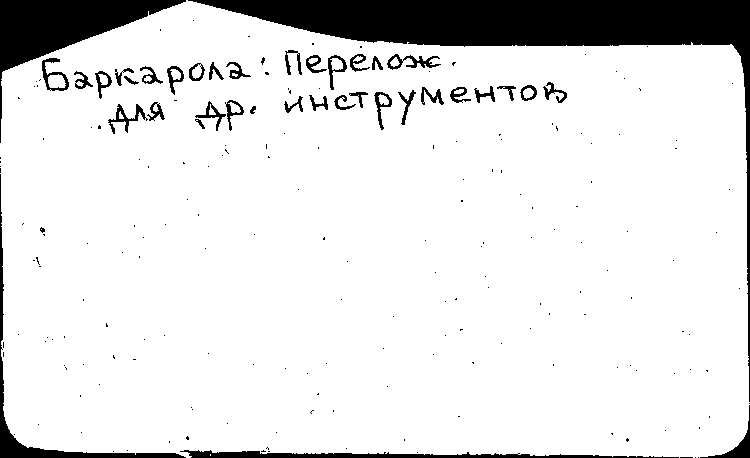 Баркарола: Перелож.
для др. инструментов